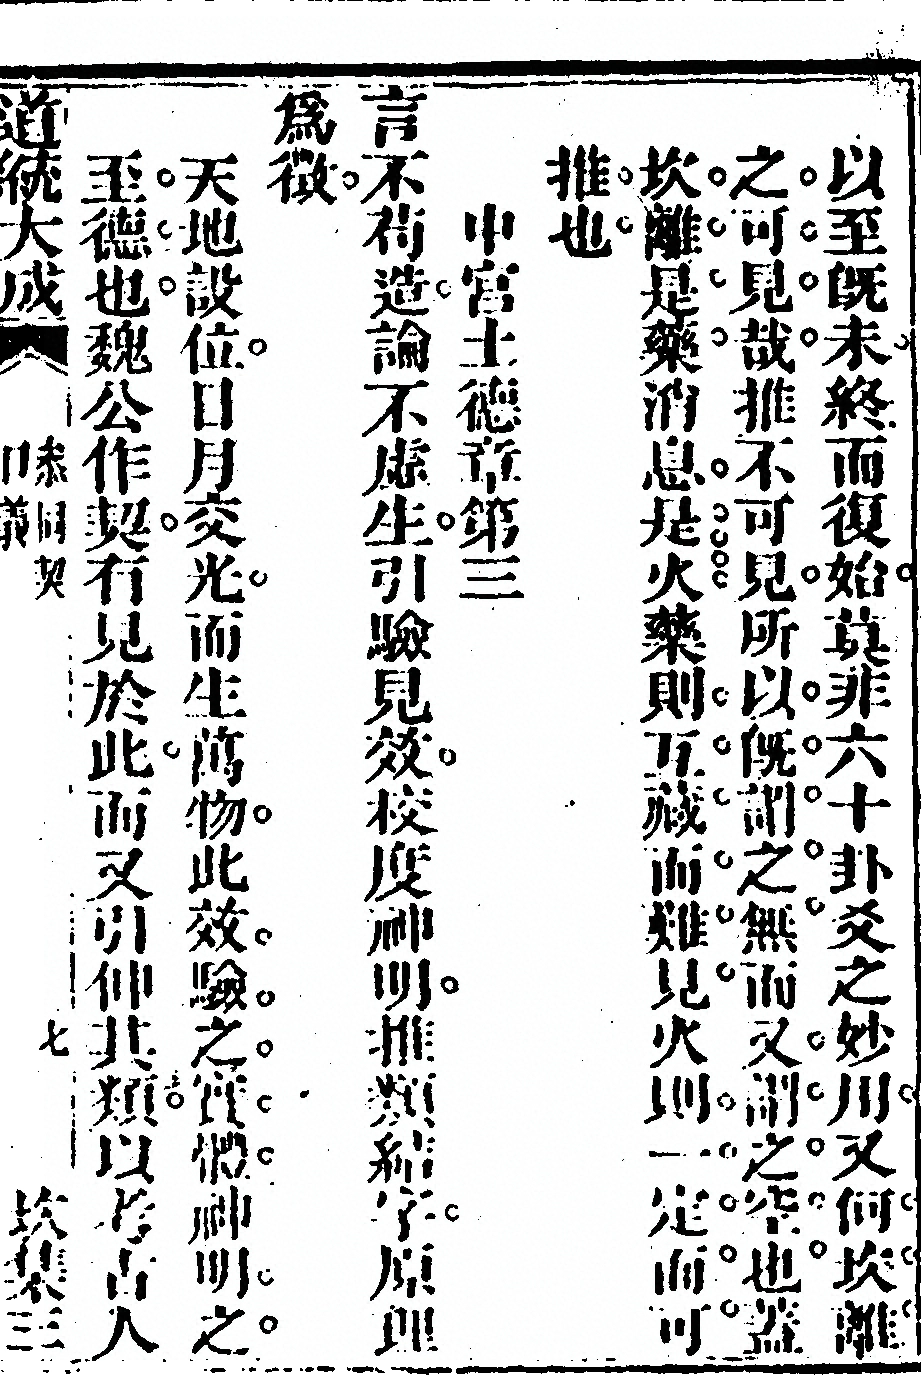 以至旣未終而復始莫非六十卦爻之妙用又何坎離
之可見哉推不可見所以旣謂之無而又謂之空也蓋
坎離是藥消息是火藥則互藏而難見火則一定而可
推也
中宮土德章第三
言不苟造論不虛生引驗見效校度神明推類結字原理
爲徵
天地設位日月交光而生萬物此效驗之實體神明之
至德也魏公作契有見於此而又引伸其類以考古人
道統大成
參同契
口義
七
坎集三